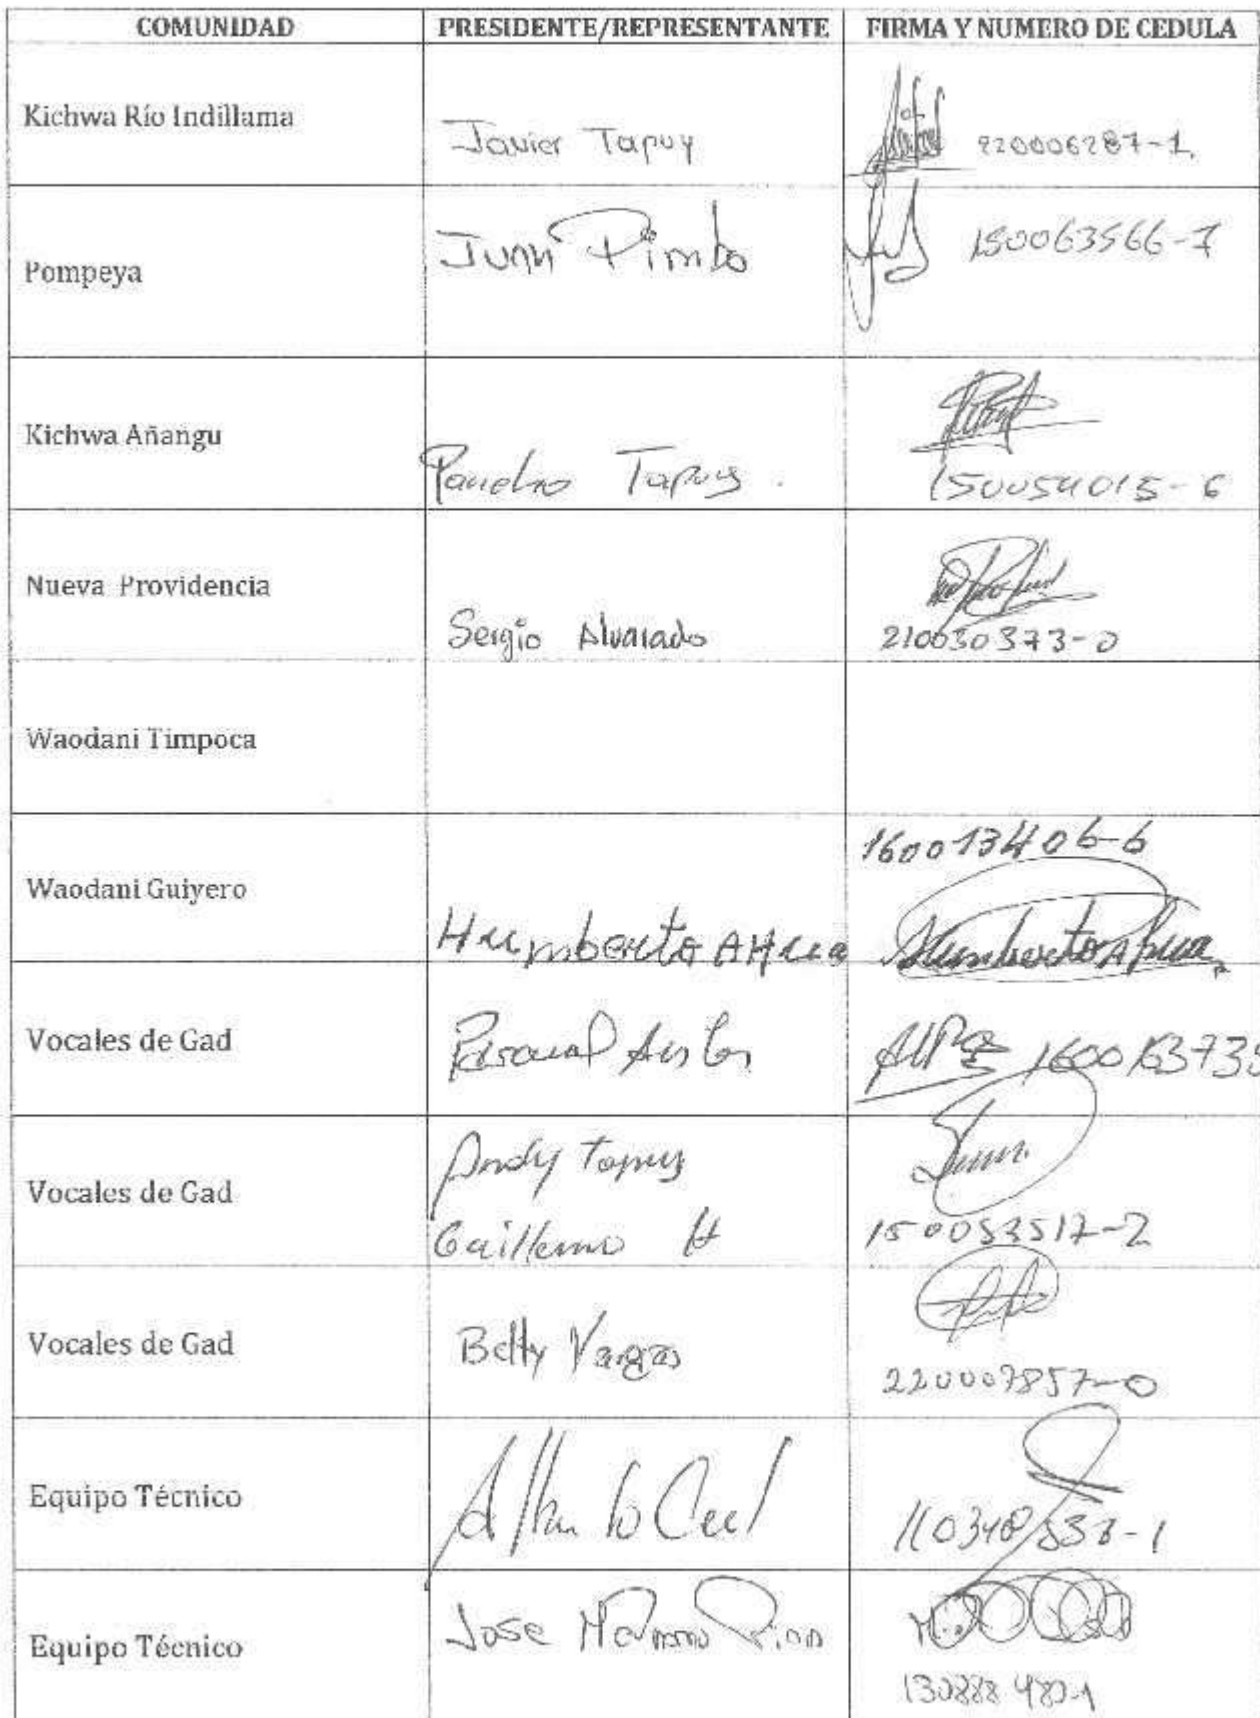 COMUNIDAD PRESIDENTE/REPRESENTANTE FIRMA Y NUMERO DE CEDULA
Kichwa Río Indillama Javier Tapuy 220006287-1
Pompeya Juan 150063566-7
Kichwa Añangu Pancho Tapuy.
150054015-6
Nueva Providencia Sergio Alvarado
210030373-0
Waodani Timpoca
160013406-6
Waodani Guiyero Humberto AHua Humberto Ahua
Vocales de Gad
Vocales de Gad Andy Tapuy
Guillermo H 150053517-2
Vocales de Gad Betty Vargas
220007857-0
Equipo Técnico
Equipo Técnico Jose